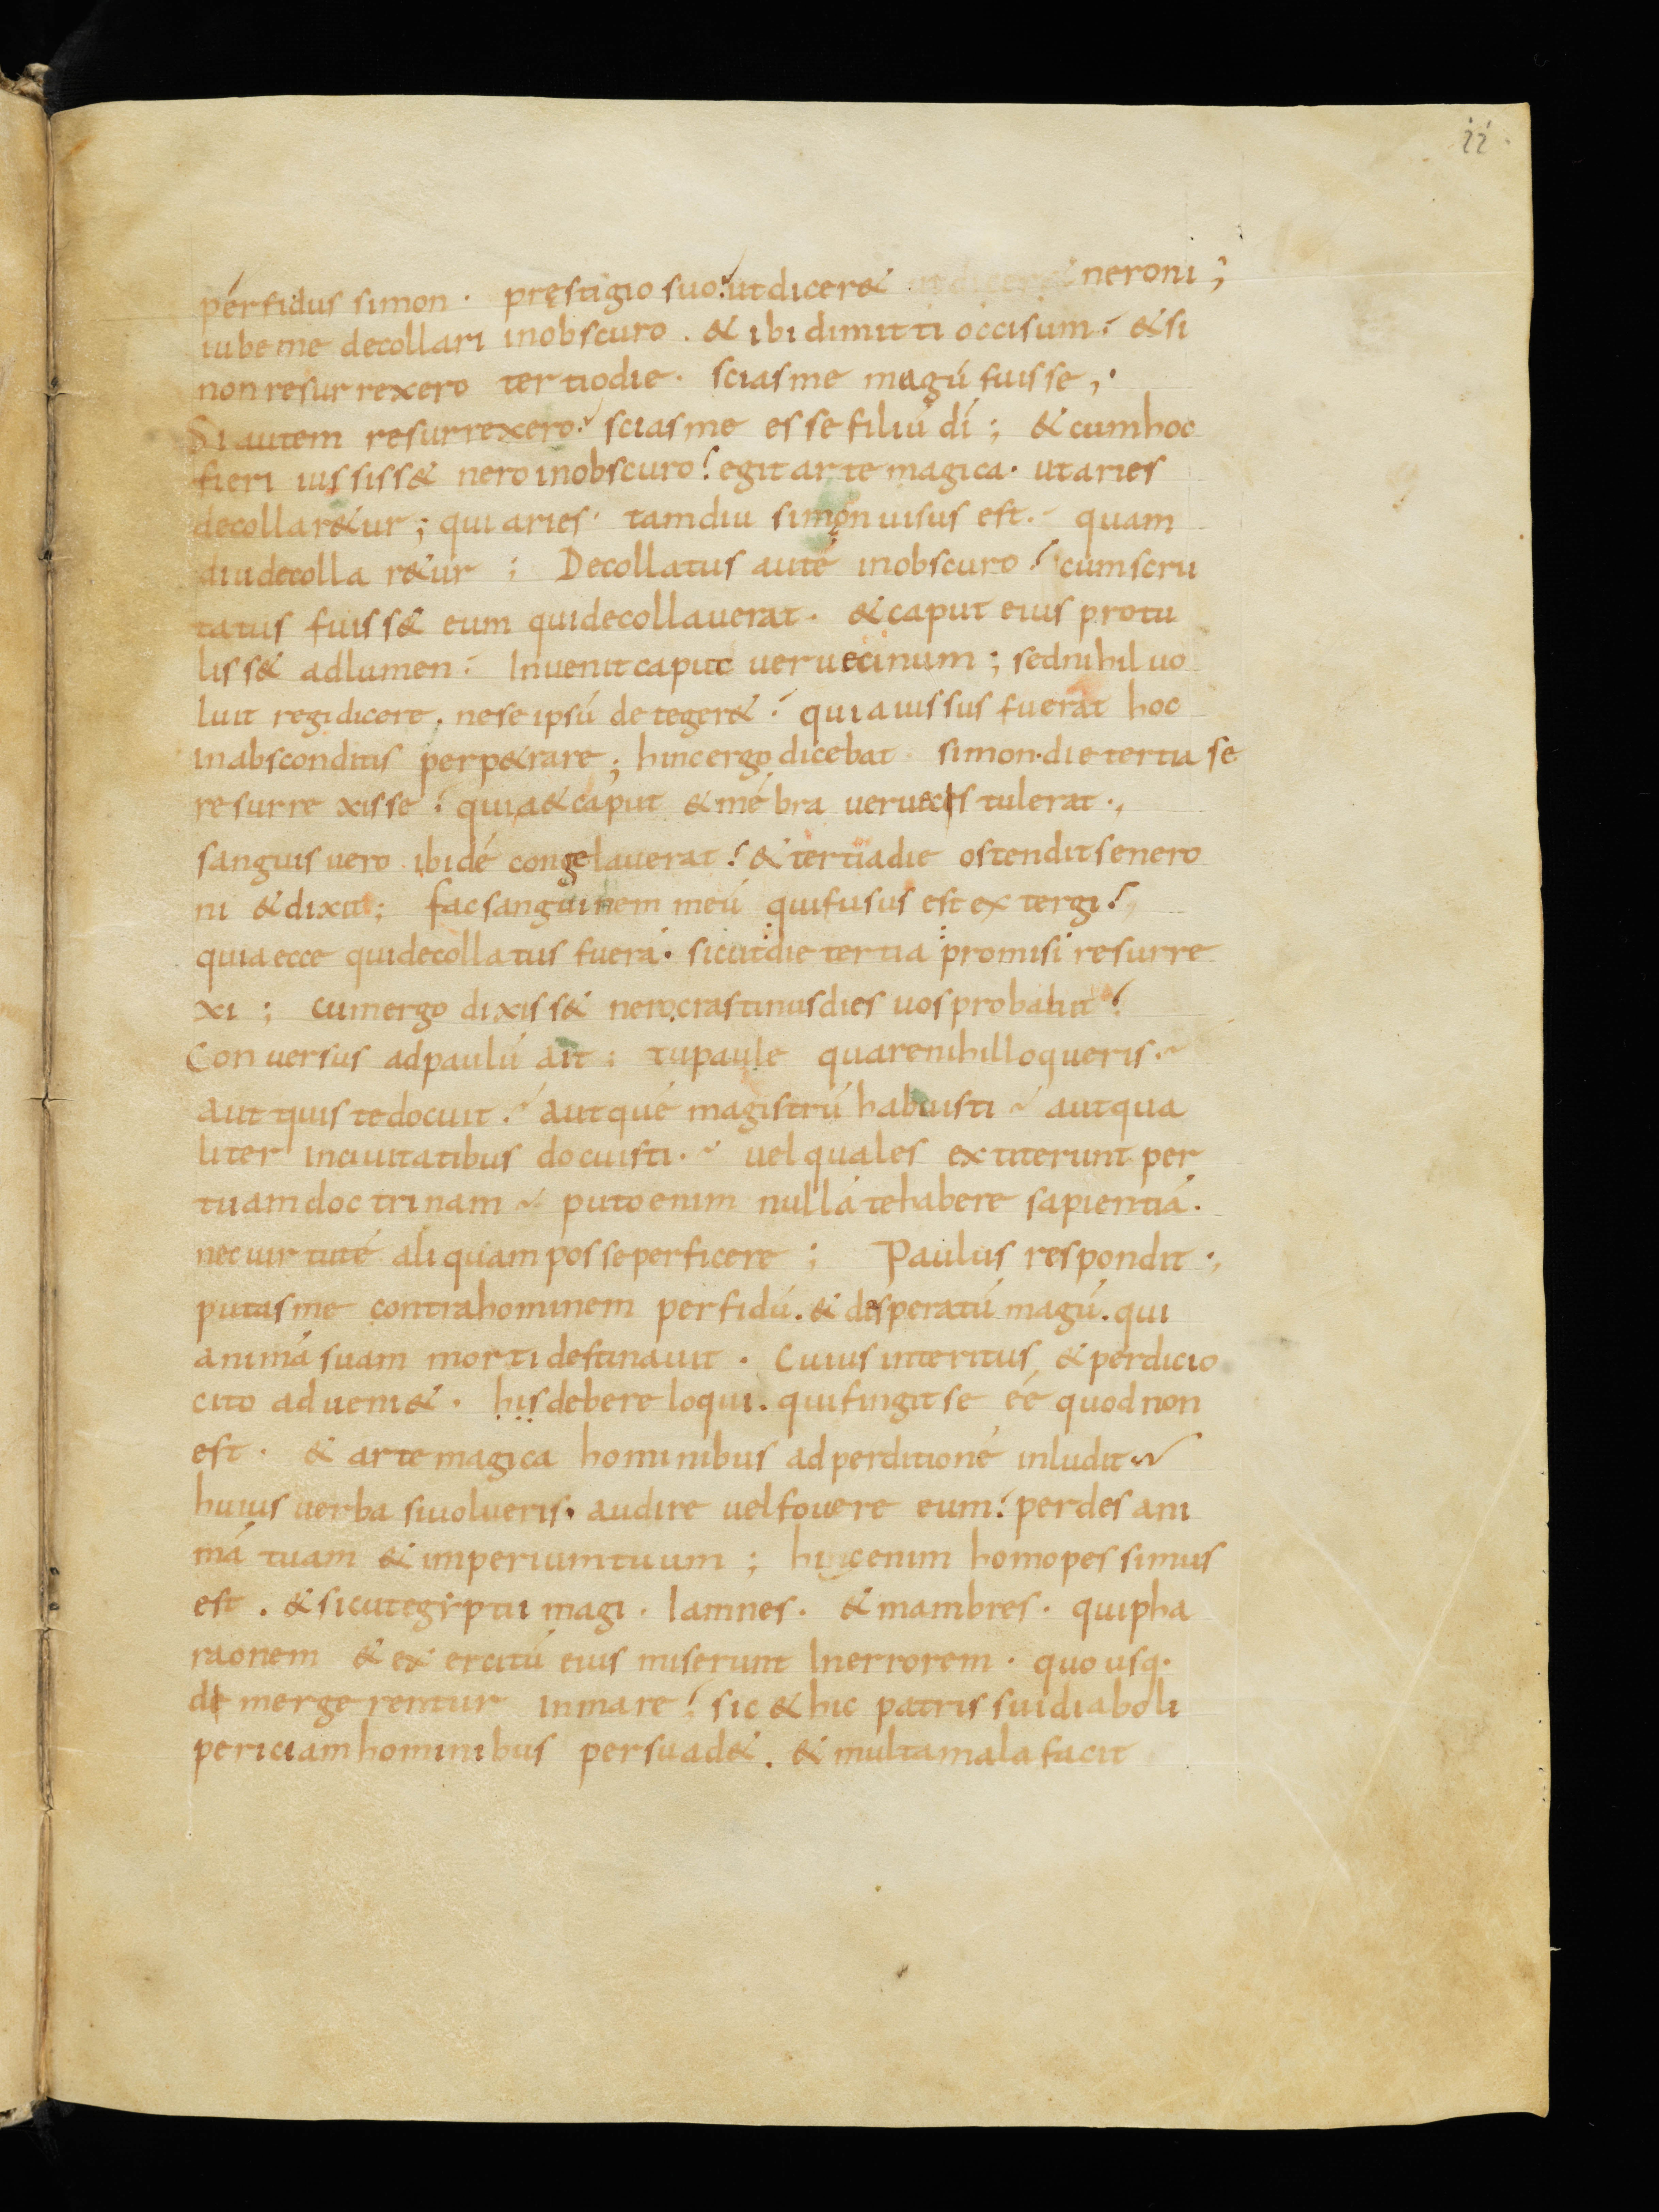 ii
perfidus simon · pręstigio suo · ut dicer& neroni ;
iube me decollari in obscuro . & ibi dimitti occisum · & si
non resurrexero tertio die · scias me magū fuisse ;
Si autem resurrexero · scias me esse filiū dī ; & cum hoc
fieri iussiss& nero in obscuro · egit arte magica · ut aries
decollar&ur ; qui aries · tamdiu simon uisus est · quam
diu decollar&ur ; Decollatus autē in obscuro · cum scru
tatus fuiss& eum qui decollauerat · & caput eius protu
liss& ad lumen · Inuenit caput ueruecinum ; sed nihil uo
luit regi dicere . ne se ipsū deteger& · quia iussus fuerat hoc
in absconditis perp&rare ; hinc ergo dicebat simon · die tertia se
resurrexisse · quia & caput & mēbra ueruecis tulerat ·,
sanguis uero ibidē congelauerat · & tertia die ostendit se nero
ni & dixit ; fac sanguinem meū qui fusus est extergi ·
quia ecce qui decollatus fuerā · sicut die tertia promisi resurre
xi ; cum ergo dixiss& nero crastinus dies uos probabit ·
Conuersus ad paulū ait : tu paule quare nihil loqueris ·
aut quis te docuit · aut quē magistrū habuisti · aut qua
liter in ciuitatibus docuisti · uel quales extiterunt per
tuam doctrinam · puto enim nullā te habere sapientiā ·
nec uirtutē aliquam posse perficere ; Paulus respondit ·,
putas me contra hominem perfidū . & desperatū magū . qui
animā suam morti destinauit · Cuius interitus & perdicio
cito adueni& · his debere loqui . qui fingit se eē quod non
est · & arte magica hominibus ad perditionē inludit ·
huius uerba si uolueris · audire uel fouere eum · perdes ani
mā tuam & imperium tuum ; hic enim homo pessimus
est . & sicut egiptii magi · Iamnes · & mambres · qui pha
raonem & exercitū eius miserunt In errorem · quousq·
demergerentur in mare · sic & hic patris sui diaboli
periciam hominibus persuad& . & multa mala facit